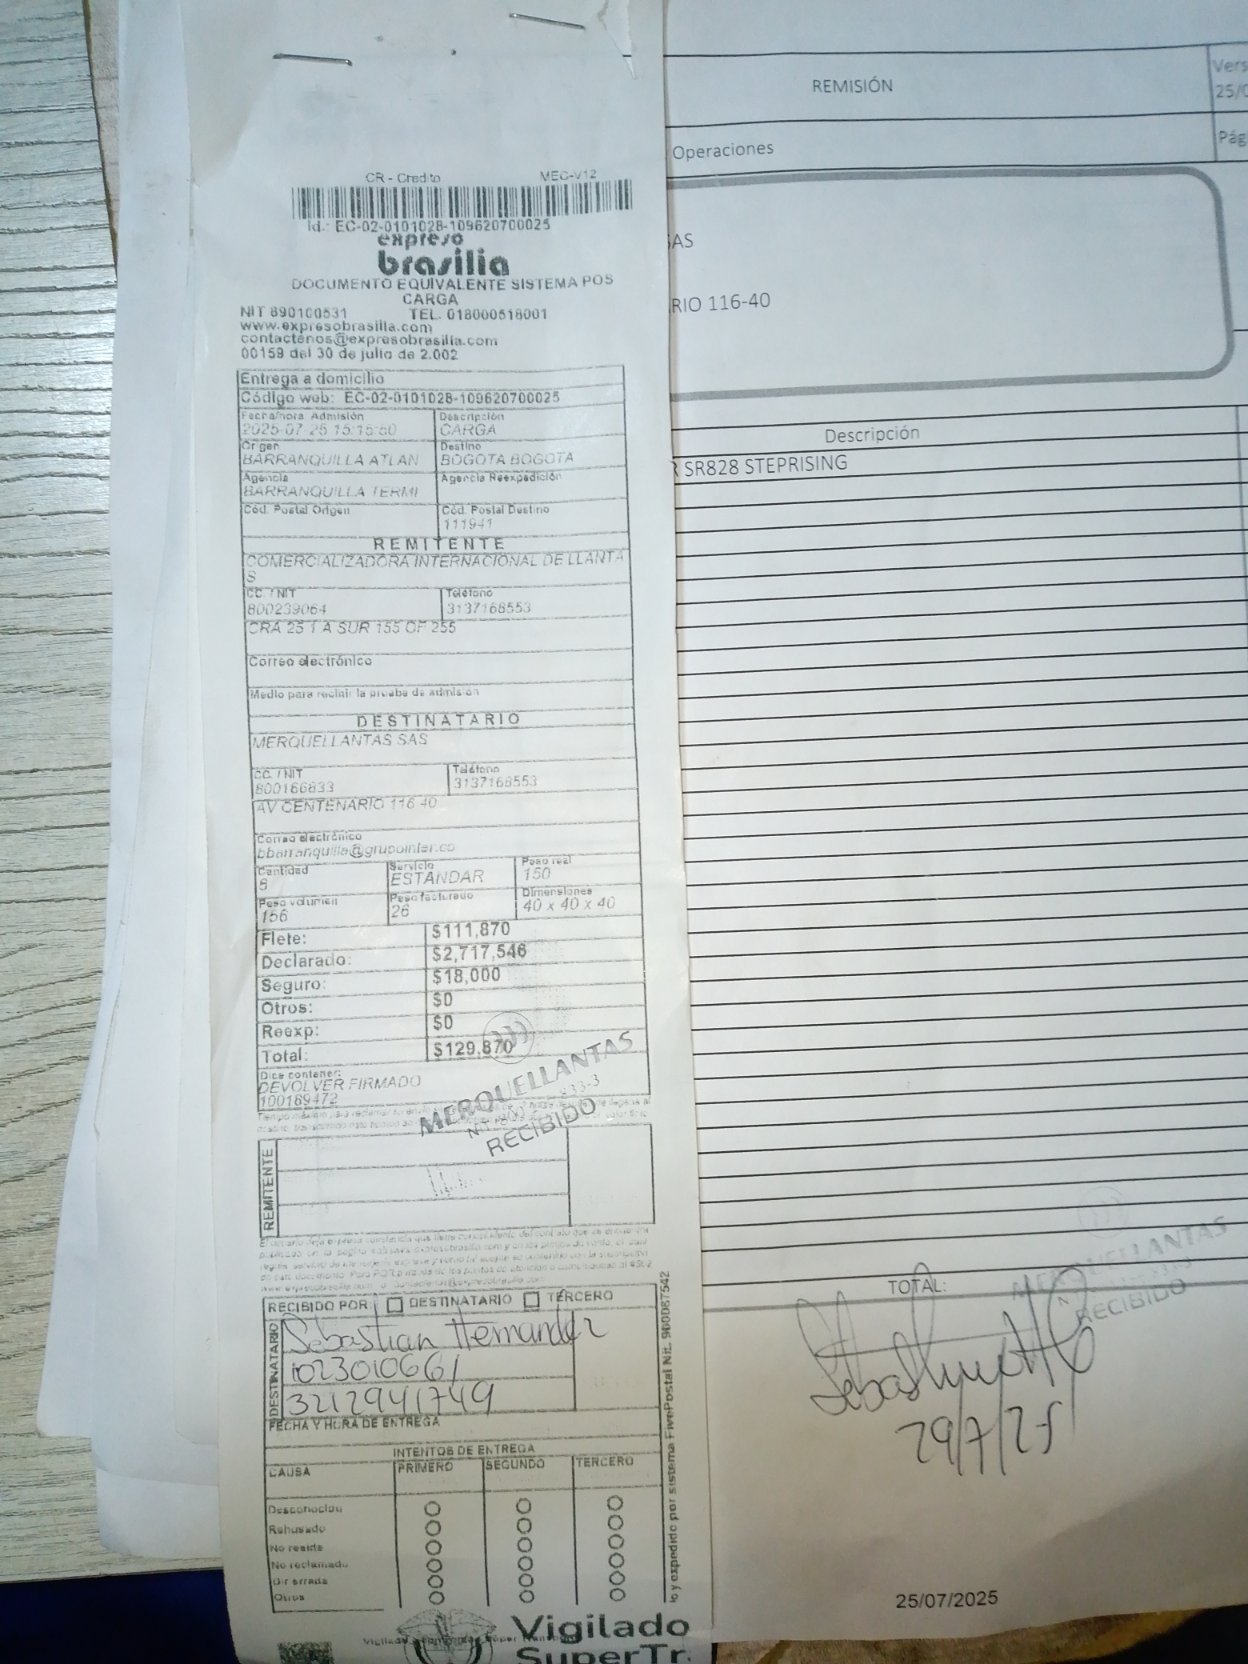 CR - Credito MEC-V12
Id.: EC-02-0101028-109620700025
expreso
brasilia
DOCUMENTO EQUIVALENTE SISTEMA POS
CARGA
NIT 890100531 TEL. 018000518001
www.expresobrasilia.com
contactenos@expresobrasilia.com
00159 del 30 de julio de 2.002
Entrega a domicilio
Código web: EC-02-0101028-109620700025
Fecha/hora Admisión Descripción
CARGA
Origen Destino
BARRANQUILLA ATLAN BOGOTA BOGOTA
Agencia Agencia Reexpedición
BARRANQUILLA TERMI
Cód. Postal Origen Cód. Postal Destino
111941
REMITENTE
COMERCIALIZADORA INTERNACIONAL DE LLANTA
S
CC. / NIT Teléfono
800239064 3137168553
CRA 25 1 A SUR 155 OF 255
Correo electrónico
Medio para recibir la prueba de admisión
DESTINATARIO
MERQUELLANTAS SAS
CC. / NIT Teléfono
800166833 3137168553
AV CENTENARIO 116 40
Correo electrónico
bbarranquilla@grupointer.co
Cantidad Servicio Peso real
ESTANDAR 150
Peso volumen Peso facturado Dimensiones
156 26 40 x 40 x 40
Flete: $111,870
Declarado: $2,717,546
Seguro: $18,000
Otros: $0
Reexp: $0
Total: $129,870
Dice contener:
DEVOLVER FIRMADO
100189472
MERQUELLANTAS
RECIBIDO
REMITENTE
RECIBIDO POR: DESTINATARIO TERCERO
DESTINATARIO
Sebastian Hernandez
1023010661
3212941749
FECHA Y HORA DE ENTREGA
INTENTOS DE ENTREGA
CAUSA PRIMERO SEGUNDO TERCERO
Desconocido
Rehusado
No reside
No reclamado
Dir errada
Otros
lo y expedido por sistema FivePostal Nit. 900087542
Vigilado
SuperTr
REMISIÓN
Vers
25/0
Operaciones
Pág
AS
RIO 116-40
Descripción
R SR828 STEPRISING
TOTAL:
MERQUELLANTAS
RECIBIDO
29/7/25
25/07/2025